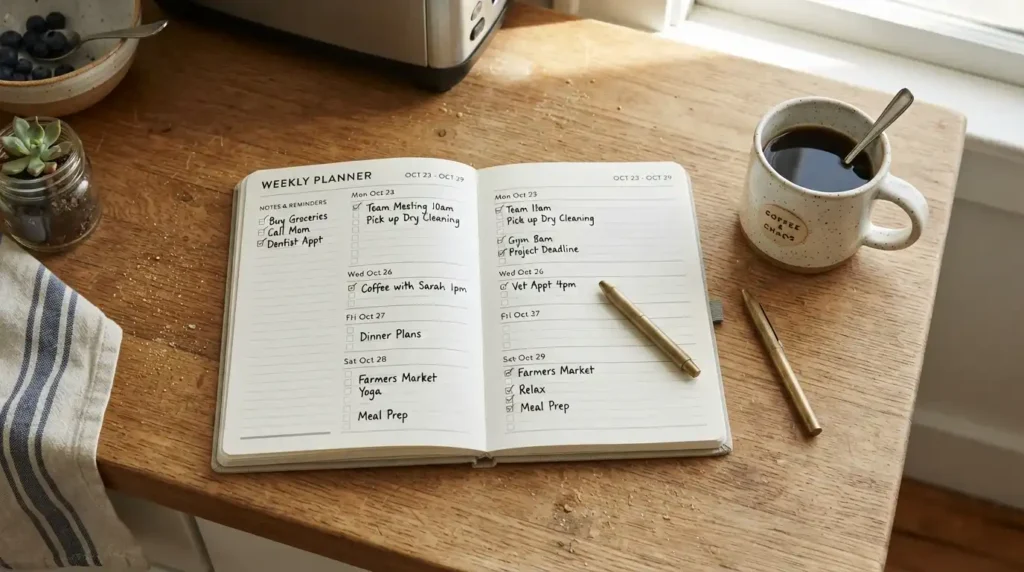 WEEKLY PLANNER
OCT 23 - OCT 29
NOTES & REMINDERS
Buy Groceries
Call Mom
Dentist Appt
Mon Oct 23
Team Meeting 10am
Pick up Dry Cleaning
Wed Oct 26
Coffee with Sarah 1pm
Fri Oct 27
Dinner Plans
Sat Oct 28
Farmers Market
Yoga
Meal Prep
OCT 23 - OCT 29
Mon Oct 23
Team 11am
Pick up Dry Cleaning
Gym 8am
Project Deadline
Wed Oct 26
Vet Appt 4pm
Fri Oct 27
Sat Oct 29
Farmers Market
Relax
Meal Prep
COFFEE
&